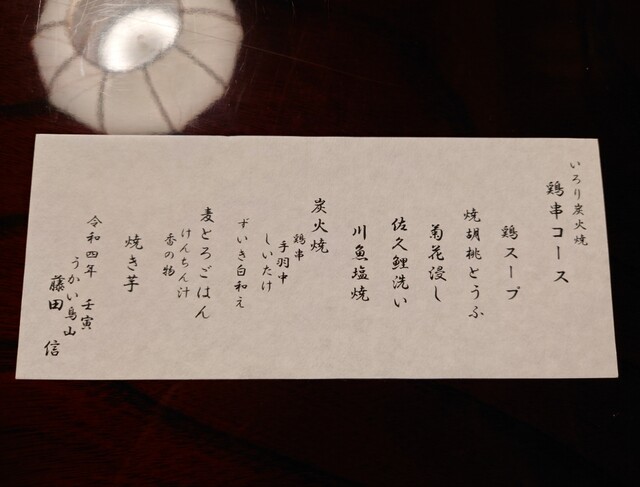 いろり炭火焼
鶏串コース
鶏スープ
焼胡桃とうふ
菊花浸し
佐久鯉洗い
川魚塩焼
炭火焼
鶏串
手羽中
しいたけ
ずいき白和え
麦とろごはん
けんちん汁
香の物
焼き芋
令和四年 壬寅
うかい鳥山
藤田 信